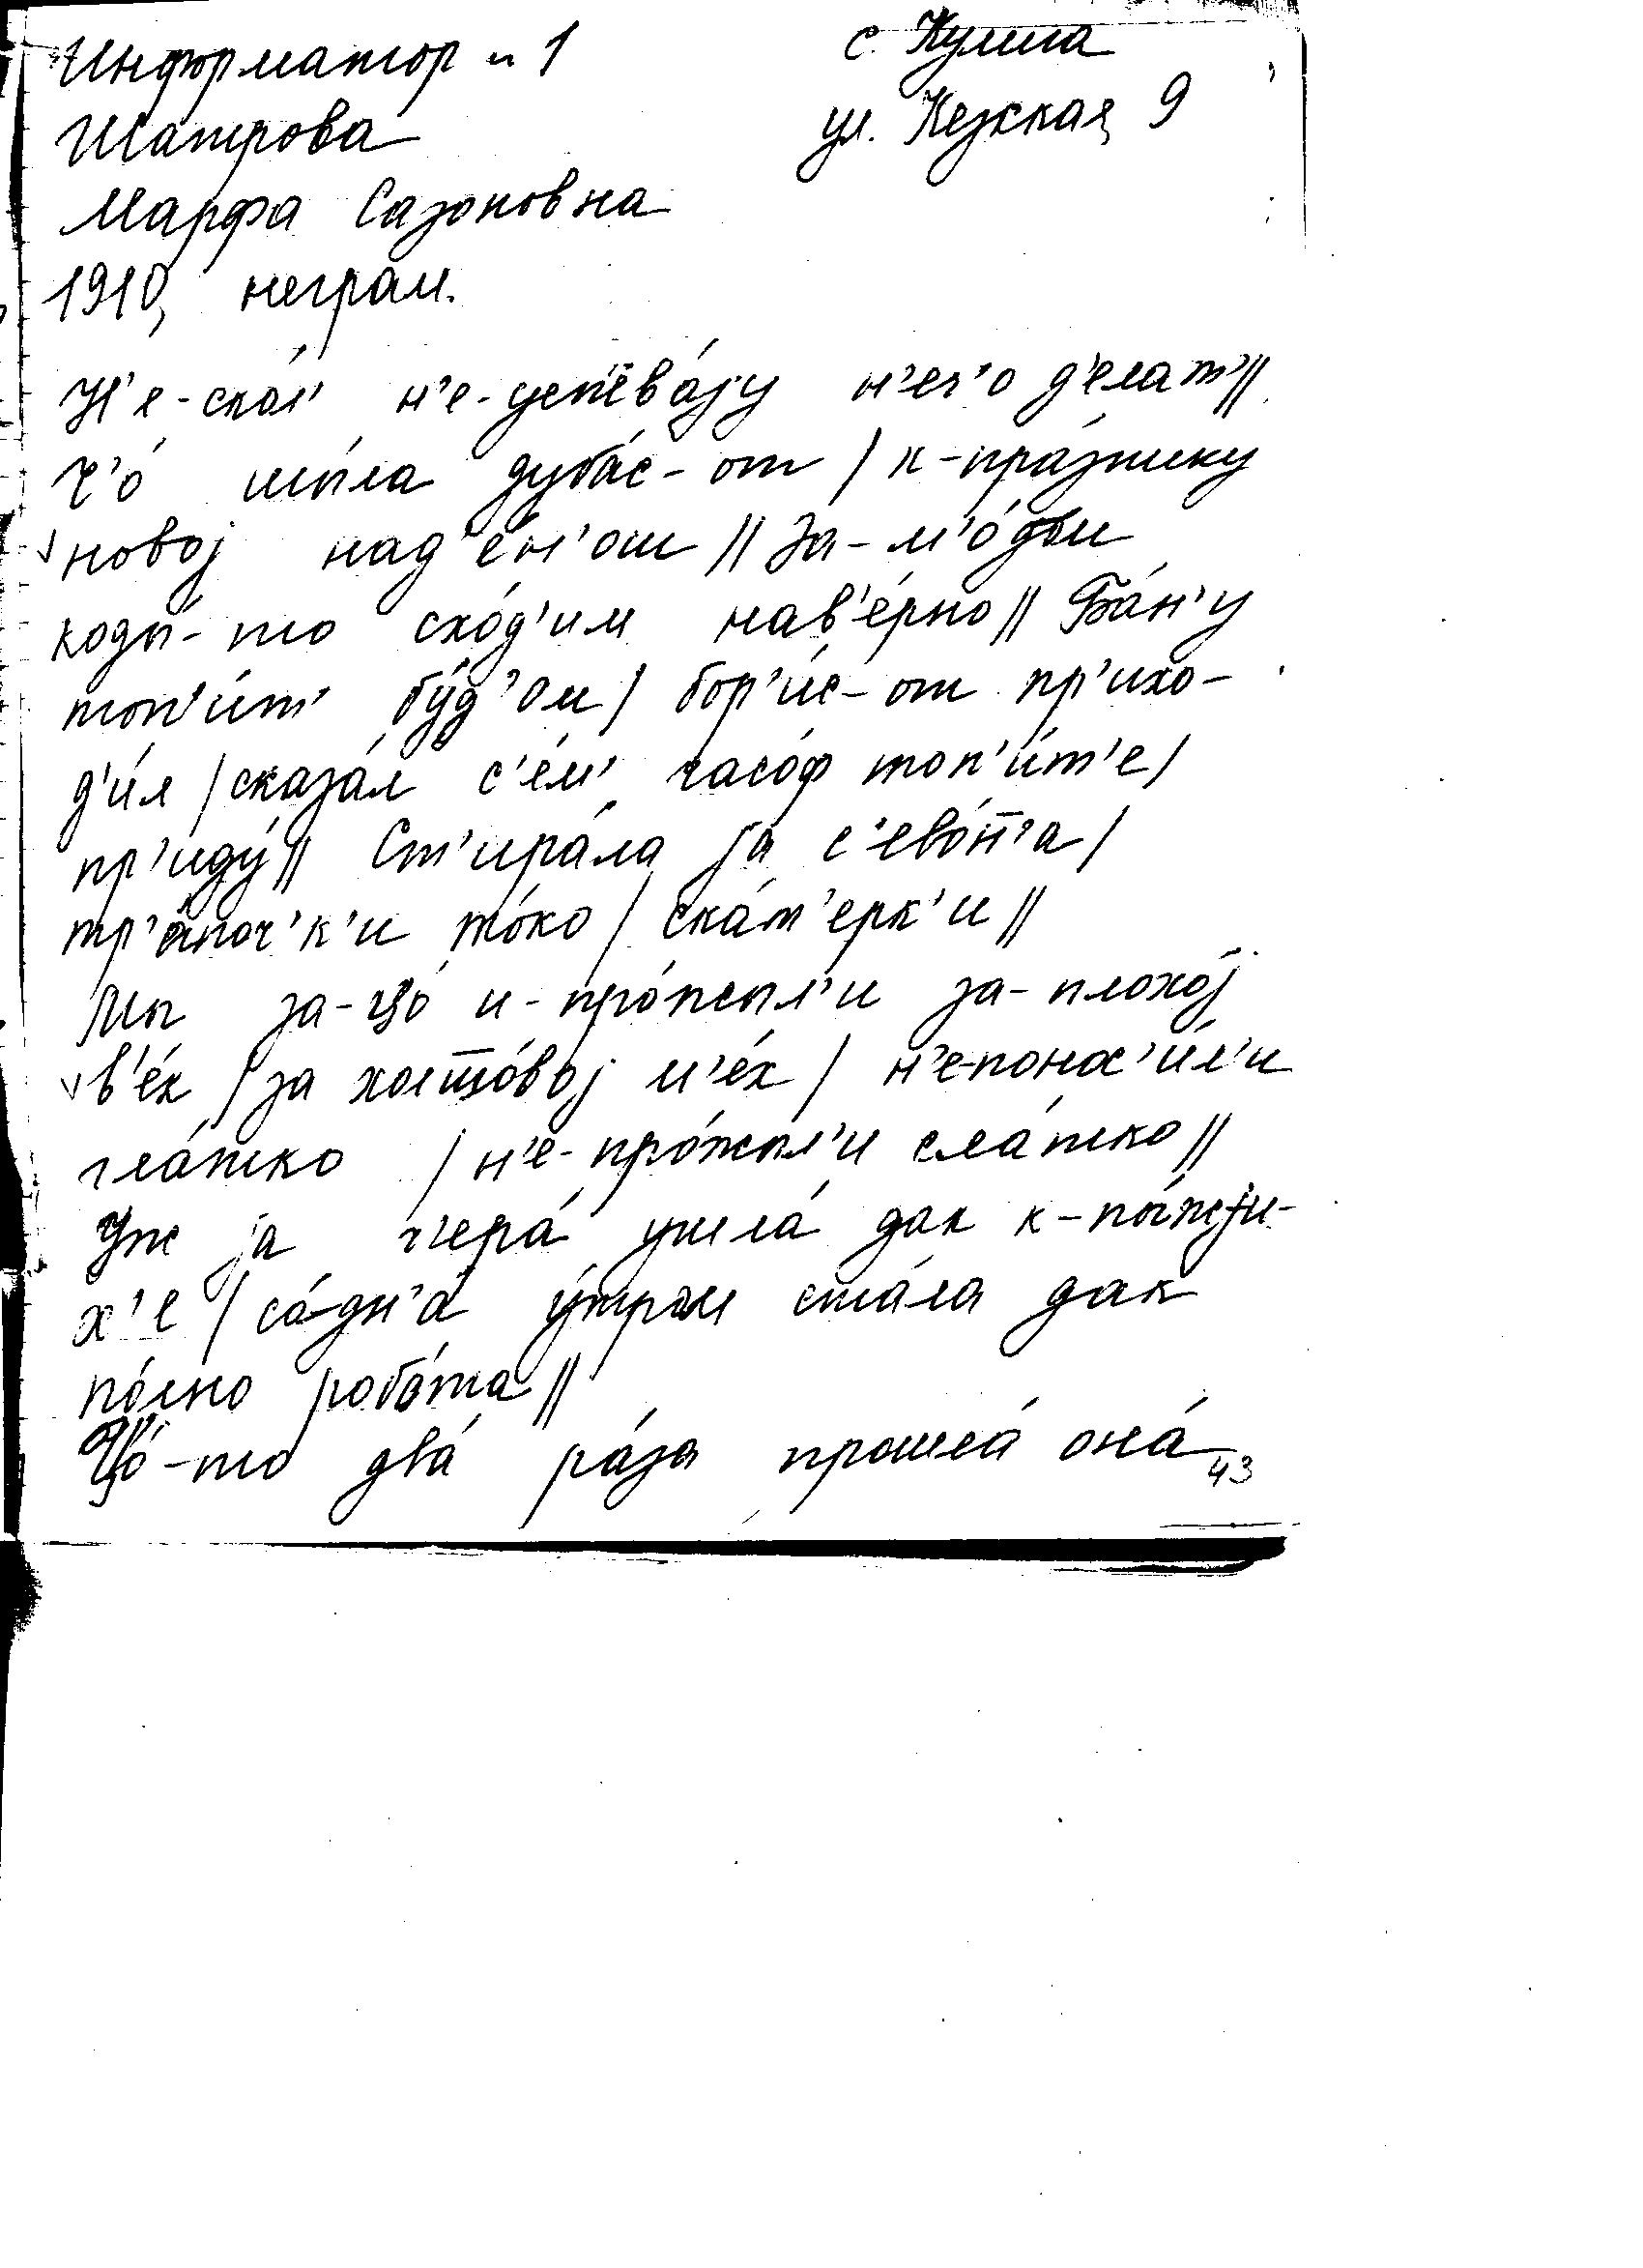 Информатор н 1 с. Кулига
Шатрова ул. Кезская, 9
Марфа Сазоновна
1910, неграм.
Н'е-скол' н'е-усп'ева́jу н'еч'о д'елат'//
Ч'о́ шы́ла дуба́с-от / к-пра́знику
новоj над'е́н'ош // За-м'о́дом
коды́-то схо́д'им нав'е́рно // Ба́н'у
топ'и́т' бу́д'ом / бор'и́с-от пр'ихо-
д'и́л / сказа́л с'е́м' часо́ф топ'и́т'е /
пр'иду́ // Ст'ира́ла jа с'ево́дн'а /
тр'а́поч'к'и то́ко / ска́т'ерк'и //
Мы за-цо́ и-про́жыл'и за-плохо́j
в'е́к / за холшо́воj м'е́х / н'е-понос'и́л'и
гла́тко / н'е-про́жыл'и сла́тко //
Уж jа вч'ера́ ушла́ дак к-пы́жjи-
х'е / со́-дн'а у́тром ста́ла дак
по́лно робо́та //
Цо́-то два́ ра́за прошла́ она́
43